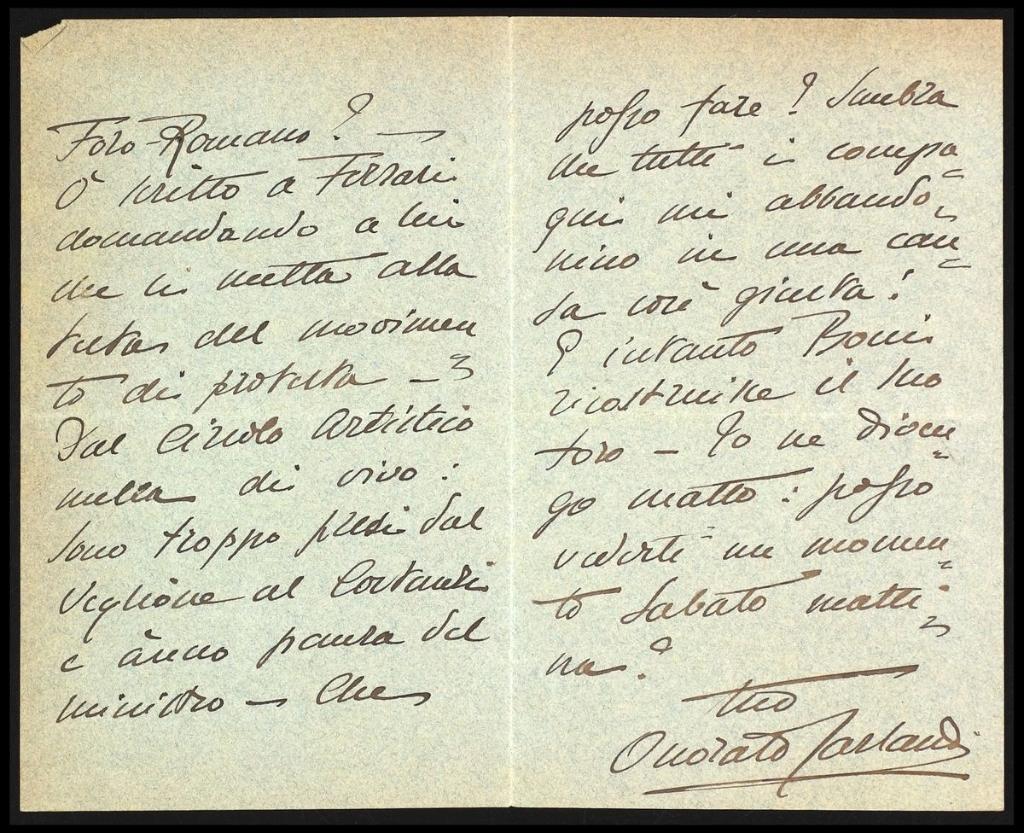 Foro-Romano? —
Ò scritto a Ferrari
domandando a lui
che si metta alla
testa del movimen
to di protesta —
Dal Circolo Artistico
nulla di vivo:
sono troppo presi dal
Veglione al Costanzi
e ànno paura del
ministro — Che
posso fare? Sembra
che tutti i compa=
gni mi abbando=
nino in una cau=
sa così giusta!
E intanto Boni
ricostruisce il suo
foro — Io ne diven=
go matto: posso
vederti un momen=
to Sabato matti=
na?
tuo
Onorato Carlandi